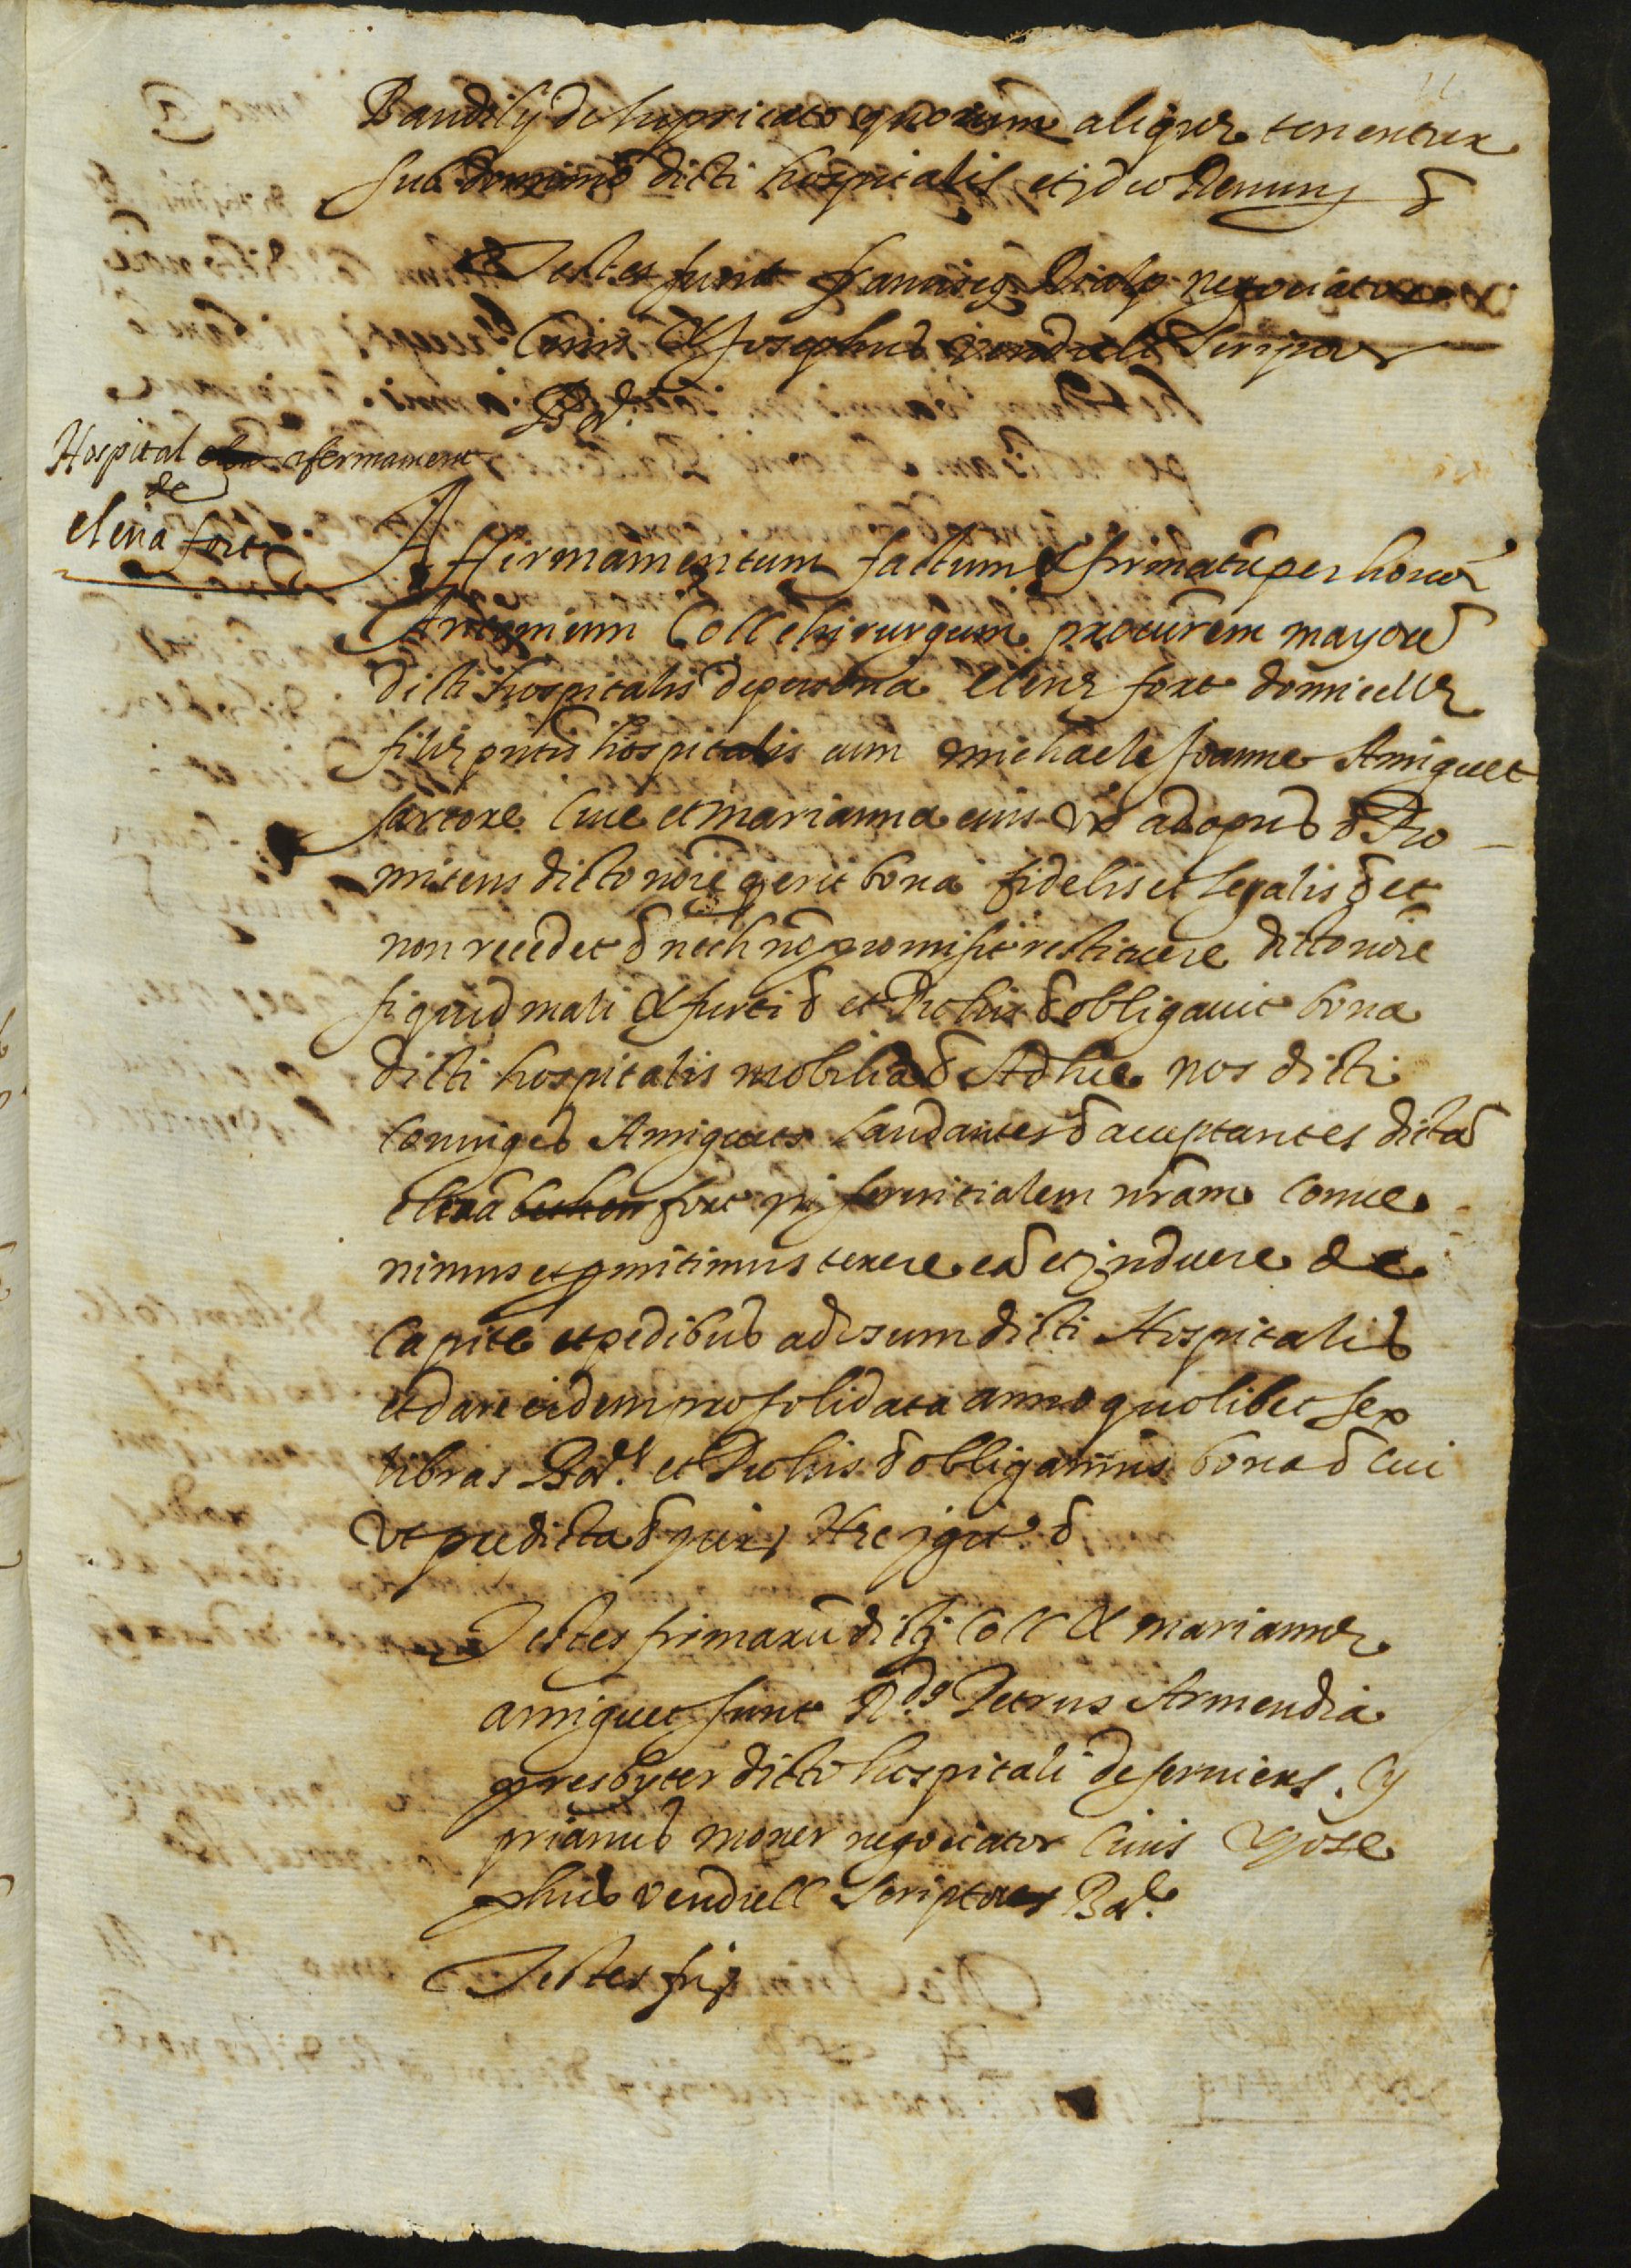 Baudilij de lupricato quorum aliquæ tenentur
sub dominio dicti hospitalis et ideo Renun &
Testes sunt Dialp negociator
Civis & Josephus vendrell Scriptor
Bar.
Hospital afermament
de
elena fort
Affirmamentum factum & firmatū per honor
Antonium Coll chirurgum procurem mayorē
dicti hospitalis de persona elenæ fort domicellæ
filiæ pntis hospitalis cum michaele Joanne Amiguet
sartore Cive et marianna eius ux ad opus & Pro
mitens dicto noīe q erit bona fidelis et legalis & et
non recedet & nech nō promisit restituere dicto noīe
si quid mali & furti & et Pro his & obligavit bona
dicti hospitalis mobilia & Ad hæc nos dicti
Coniuges Amiguets laudantes & acceptantes dictā
elenā fort in servitialem nrām Conve
nimus et pmitimus tenere eā et induere de
Capite et pedibus ad usum dicti Hospitalis
et dare eidem pro solidata anno quolibet sex
libras Bar. et Pro his & obligamus bona & cui
Ut predicta & jur, Hæc igit. &
Testes firmarū dictj Coll & mariannæ
amiguet sunt Rds Petrus Armendia
presbyter dicto hospitali deserviens. Cy
prianus moner negociator Civis Yose
phus vendrell Scriptores Bar.
Testes fir